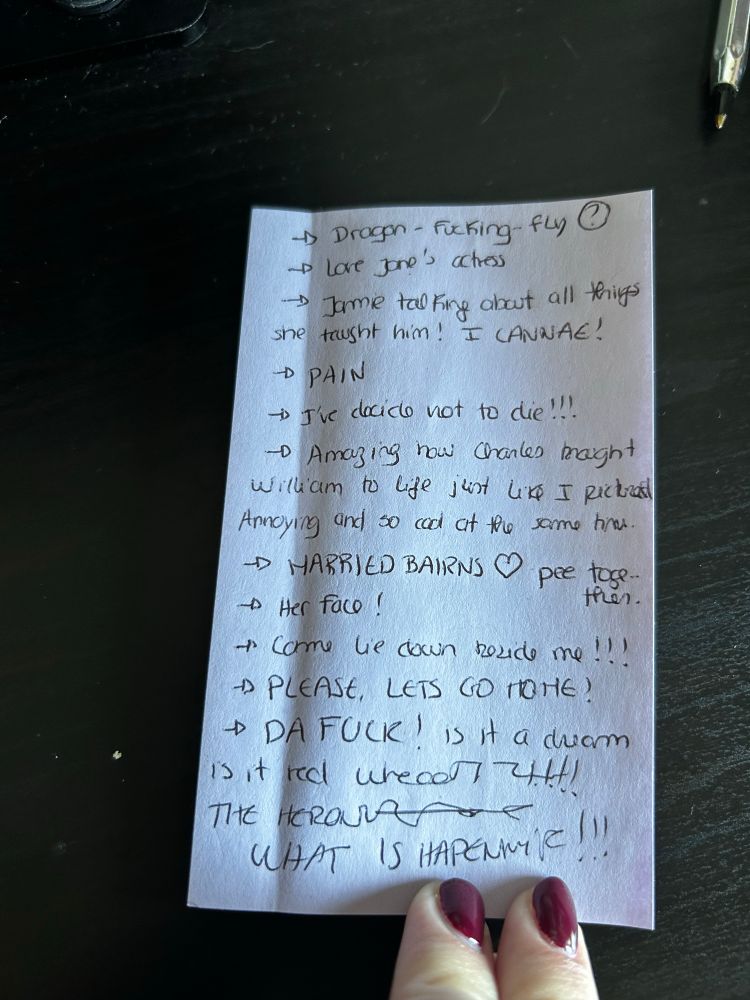 → Dragon-Fucking-fly ?
→ Love Jane's actress
→ Jamie talking about all things
she taught him! I CANNAE!
→ PAIN
→ I've decide not to die!!!
→ Amazing how Charles brought
William to life just like I pictured
Annoying and so cad at the same time.
→ MARRIED BAIRNS ♡ pee toge-
ther.
→ Her face!
→ Come lie down beside me!!!
→ PLEASE, LETS GO HOME!
→ DA FUCK! is it a dream
is it real
THE HERON
WHAT IS HAPENNING!!!